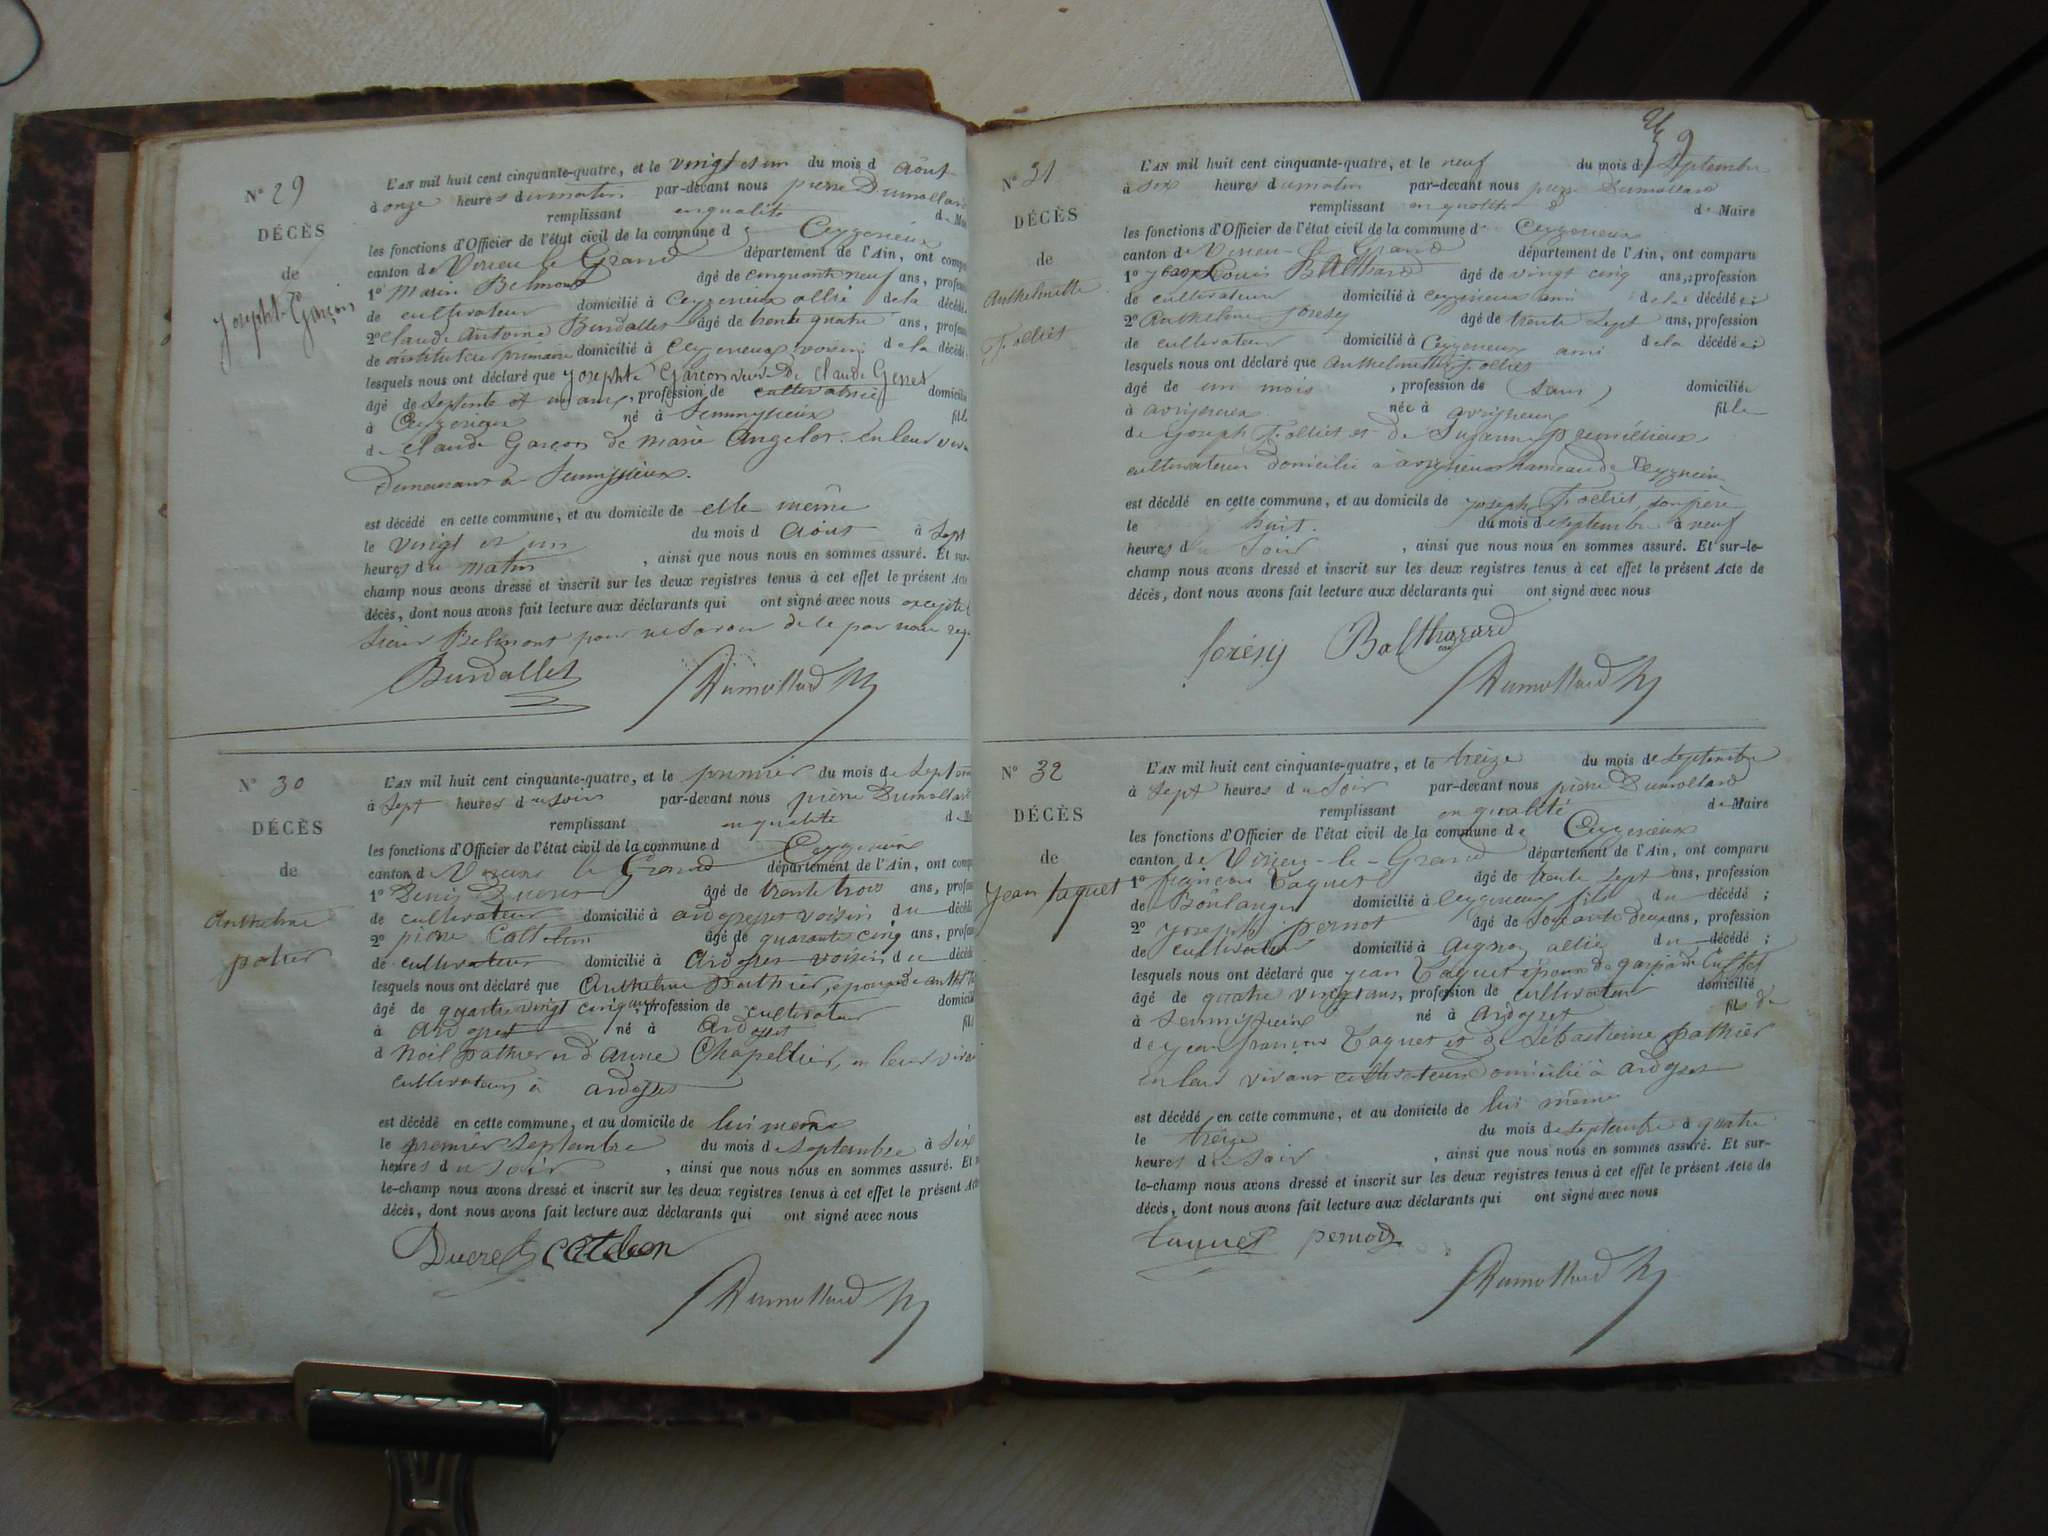 N° 29
DÉCÈS
de
Josephte Garçon
L'AN mil huit cent cinquante-quatre, et le vingt et un du mois d Août
à onze heures du matin par-devant nous pierre Dumollard
remplissant en qualité de
les fonctions d'Officier de l'état civil de la commune d Ceyzerieux
canton de Virieu le Grand département de l'Ain, ont
1° Marin Belmont âgé de cinquante neuf ans,
de cultivateur domicilié à Ceyzerieux allié de la
2° Claude Antoine Burdallet âgé de trente quatre ans,
de instituteur primaire domicilié à Ceyzerieux voisin de la
lesquels nous ont déclaré que Josephte Garçon veuve de Claude
âgé de septente et un ans, profession de cultivatrice
à Ceyzerieux né à
de Claude Garçon de marie Angelot. en leur
Demeurant à
est décédé en cette commune, et au domicile de elle même
le vingt et un du mois d Août à sept
heures du matin, ainsi que nous nous en sommes assuré. Et sur-
champ nous avons dressé et inscrit sur les deux registres tenus à cet effet le présent Acte
décès, dont nous avons fait lecture aux déclarants qui ont signé avec nous excepté
sieur Belmont pour ne savoir de le par nous
Burdallet Dumollard
N° 30
DÉCÈS
de
Anthelme
patier
L'AN mil huit cent cinquante-quatre, et le premier du mois de
à sept heures du soir par-devant nous pierre Dumollard
remplissant en qualité
les fonctions d'Officier de l'état civil de la commune d Ceyzerieux
canton de Virieu le Grand département de l'Ain, ont
1° Denis Ducret âgé de trente trois ans,
de cultivateur domicilié à ardosset voisin du
2° pierre Cattelin âgé de quarante cinq ans,
de cultivateur domicilié à Ardosset voisin du
lesquels nous ont déclaré que Anthelme pathier, epoux de
âgé de quatre vingt cinq ans, profession de cultivateur
à Ardosset né à Ardosset
d Noël pathier et d'anne Chapellier, en leur
cultivateurs à ardosset
est décédé en cette commune, et au domicile de lui même
le premier septembre du mois de septembre à six
heures du soir, ainsi que nous nous en sommes assuré. Et
le-champ nous avons dressé et inscrit sur les deux registres tenus à cet effet le présent
décès, dont nous avons fait lecture aux déclarants qui ont signé avec nous
Ducret Dumollard
N° 31
DÉCÈS
de
Anthelmette
Folliet
L'AN mil huit cent cinquante-quatre, et le neuf du mois de Septembre
à six heures du matin par-devant nous pierre Dumollard
remplissant en qualité de Maire
les fonctions d'Officier de l'état civil de la commune d Ceyzerieux
canton de Virieu-le-Grand département de l'Ain, ont comparu
1° Louis Balthard âgé de vingt cinq ans, profession
de cultivateur domicilié à Ceyzerieux ami de la décédée;
2° Anthelme foresy âgé de trente sept ans, profession
de cultivateur domicilié à Ceyzerieux ami de la décédée;
lesquels nous ont déclaré que Anthelmette Folliet
âgé de un mois, profession de (sans) domiciliée
à avrissieux née à avrissieux fille
de joseph Folliet et de Suzanne premillieux
cultivateurs domicilié à avrissieux hameau de Ceyzerieux
est décédé en cette commune, et au domicile de joseph Folliet, son père
le huit. du mois de septembre à neuf
heures du soir, ainsi que nous nous en sommes assuré. Et sur-le-
champ nous avons dressé et inscrit sur les deux registres tenus à cet effet le présent Acte de
décès, dont nous avons fait lecture aux déclarants qui ont signé avec nous
forésy Dumollard
N° 32
DÉCÈS
de
Jean taquet
L'AN mil huit cent cinquante-quatre, et le treize du mois de septembre
à sept heures du soir par-devant nous pierre Dumollard
remplissant en qualité de Maire
les fonctions d'Officier de l'état civil de la commune de Ceyzerieux
canton de Virieu-le-Grand département de l'Ain, ont comparu
1° françois Taquet âgé de trente sept ans, profession
de Boulanger domicilié à Ceyzerieux fils du décédé;
2° joseph pernot âgé de soixante deux ans, profession
de cultivateur domicilié à allié du décédé;
lesquels nous ont déclaré que jean Taquet époux de
âgé de quatre vingt ans, profession de cultivateur domicilié
à né à Ardosset fils de
de jean françois Taquet et de Sébastienne pathier
en leur vivant cultivateurs domicilié à ardosset
est décédé en cette commune, et au domicile de lui même
le treize du mois de septembre à quatre
heures du soir, ainsi que nous nous en sommes assuré. Et sur-
le-champ nous avons dressé et inscrit sur les deux registres tenus à cet effet le présent Acte de
décès, dont nous avons fait lecture aux déclarants qui ont signé avec nous
taquet pernot
Dumollard